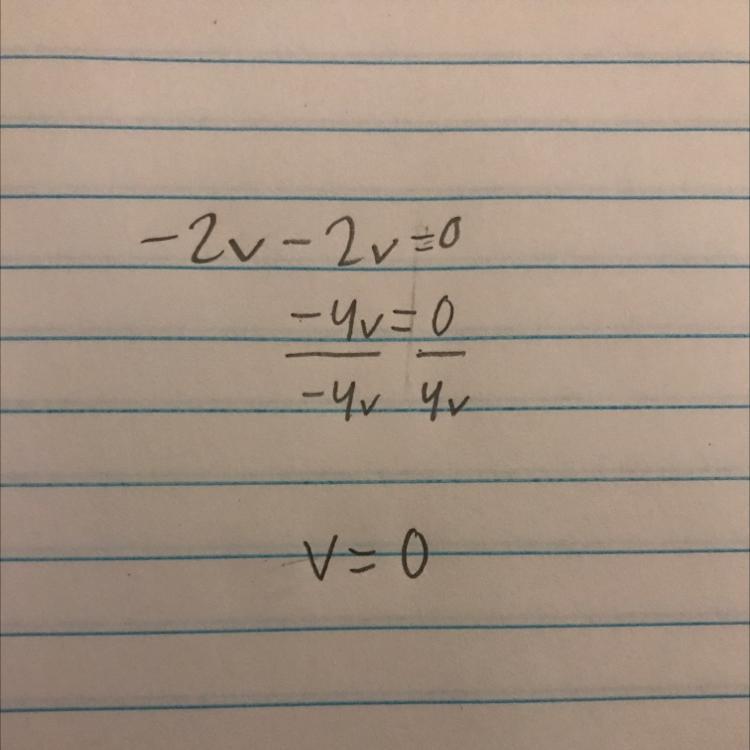 -2v - 2v = 0
-4v = 0
-4v 4v
v = 0